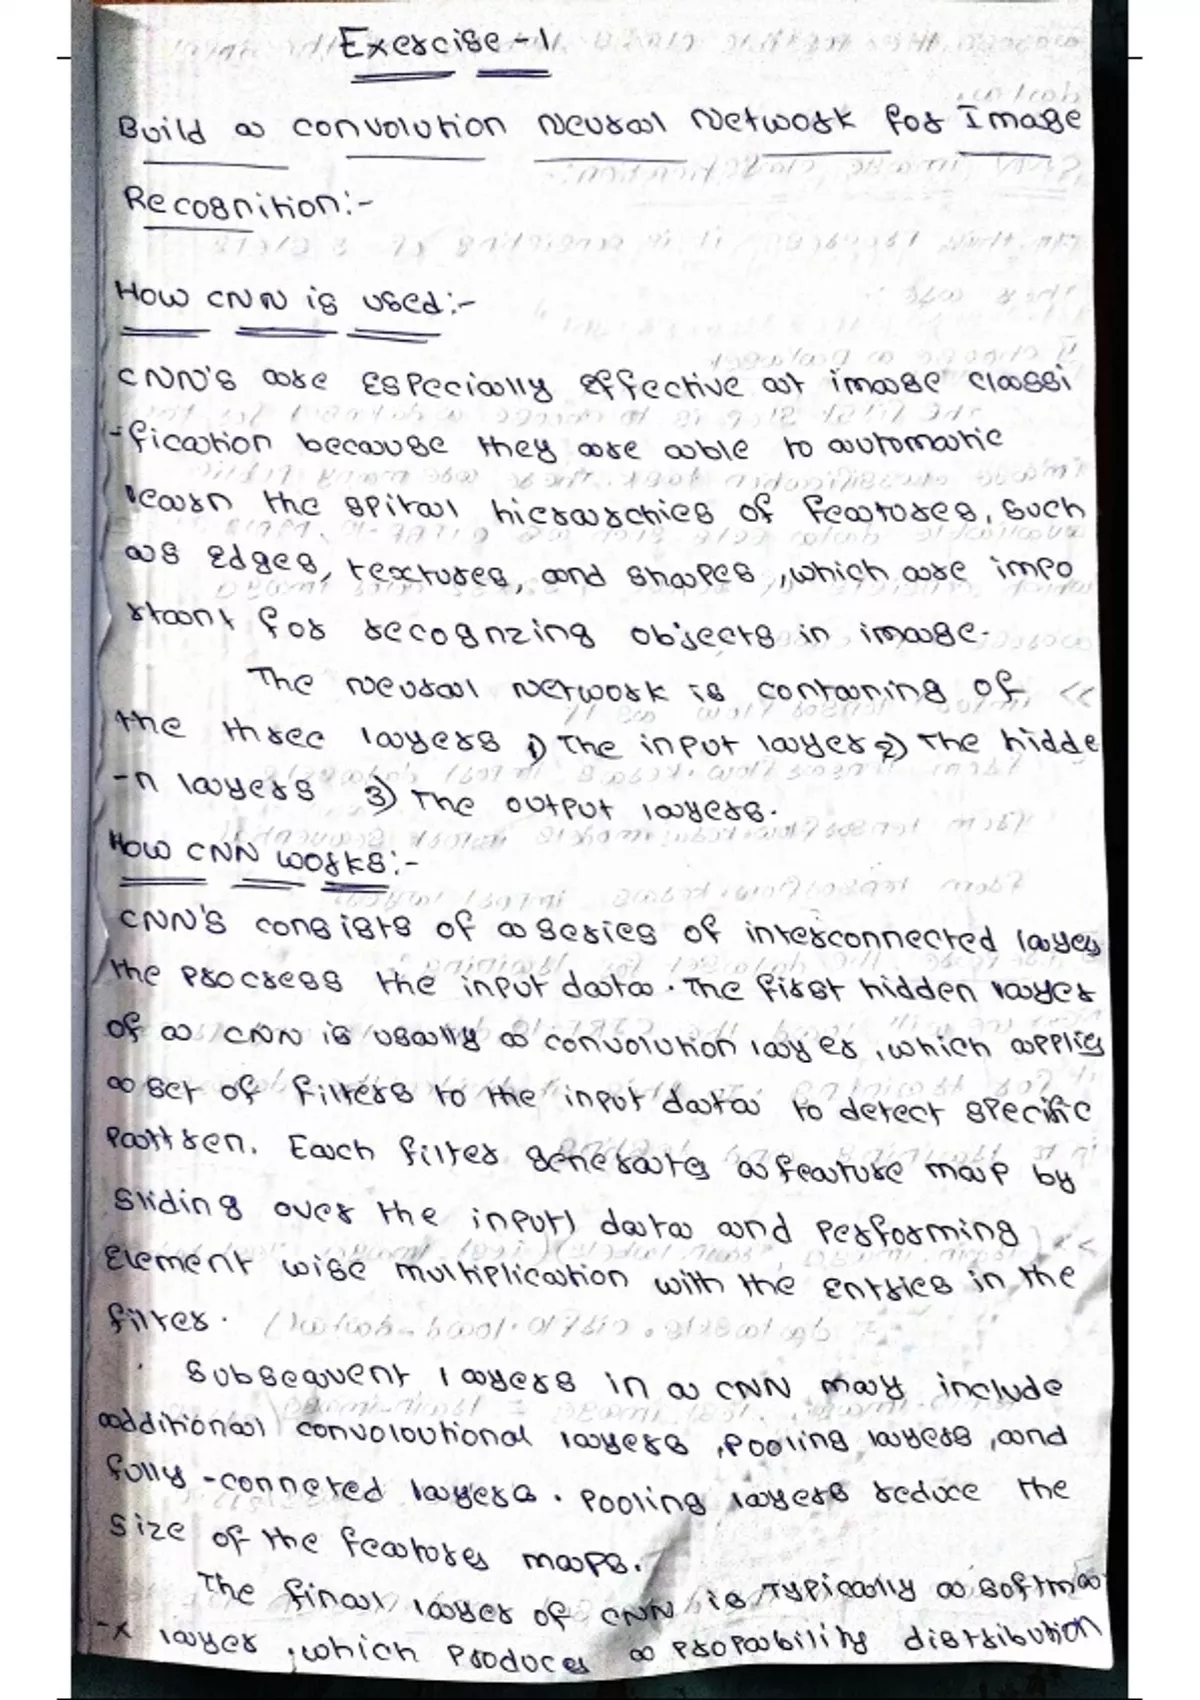 Exercise - 1
Build a convolution Neural Network for Image
Recognition:-
How CNN is used:-
CNN's are Especially Effective at image classi
-fication because they are able to automatic
learn the spital hierarchies of features, such
as Edges, textures, and shapes, which are impo
rtant for recognzing objects in image.
The neural network is containing of
the three layers 1) The input layer 2) The hidde
-n layers 3) The output layers.
How CNN works:-
CNN's consists of a series of interconnected layers
the process the input data. The first hidden layer
of a CNN is usually a convolution layer, which applies
a set of filters to the input data to detect specific
pattren. Each filter generates a feature map by
sliding over the input) data and performing
Element wise multiplication with the Entries in the
filter.
Subsequent layers in a CNN may include
additional convoloutional layers, pooling layers, and
fully-conneted layers. Pooling layers reduce the
size of the features maps.
The final layer of CNN is Typically a softma
-x layer, which produces a propability distribution